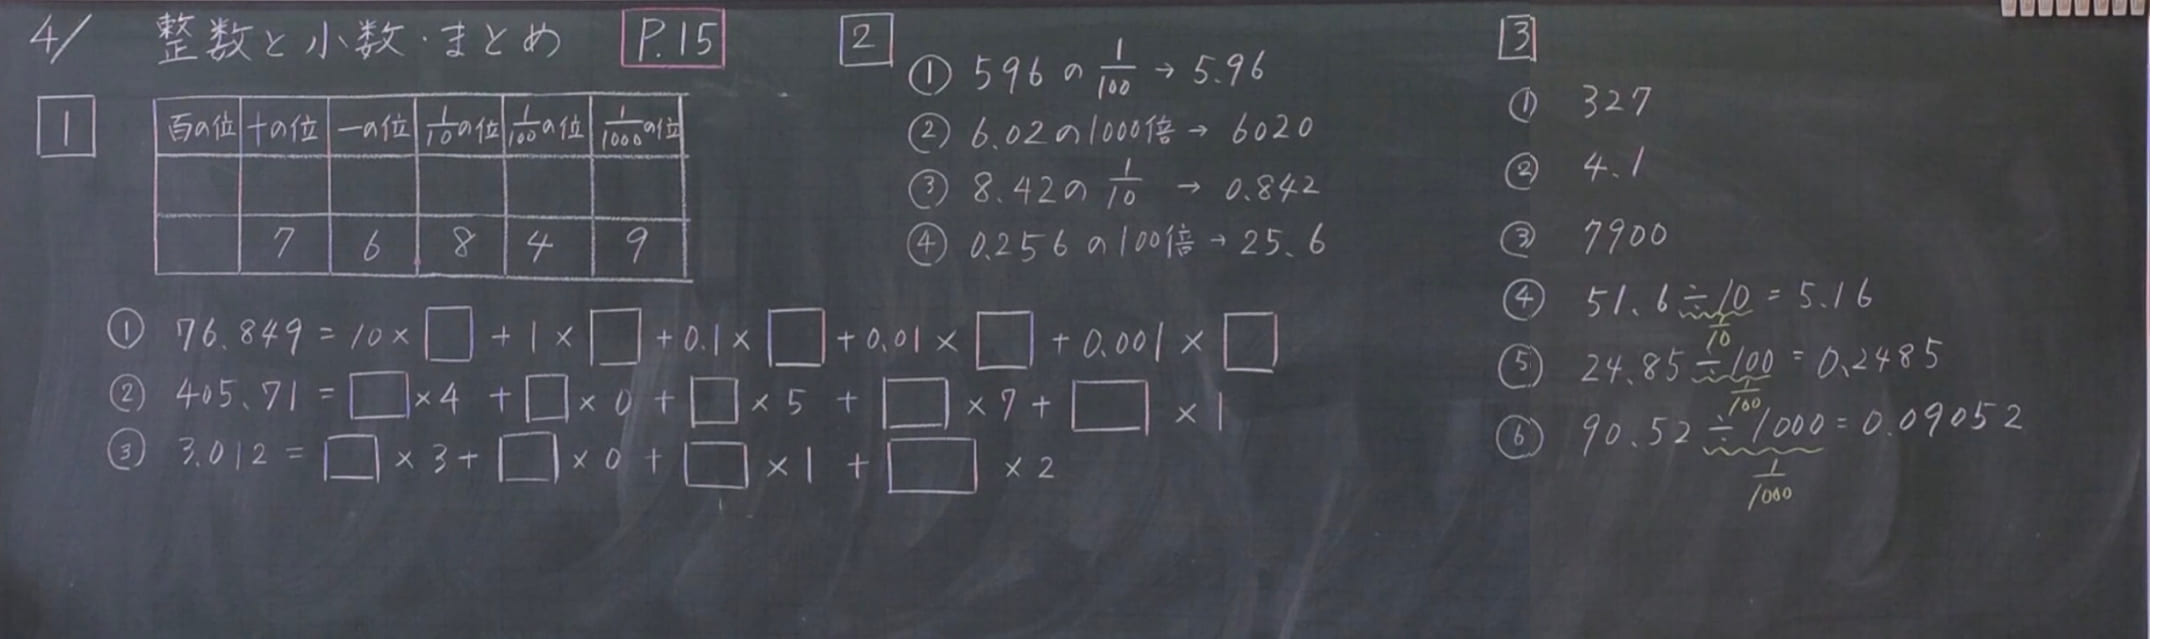 4/ 整数と小数・まとめ P.15
1
百の位 十の位 一の位 1/10の位 1/100の位 1/1000の位
7 6 8 4 9
① 76.849 = 10×□ + 1×□ + 0.1×□ + 0.01×□ + 0.001×□
② 405.71 = □×4 + □×0 + □×5 + □×7 + □×1
③ 3.012 = □×3 + □×0 + □×1 + □×2
2
① 596の1/100 → 5.96
② 6.02の1000倍 → 6020
③ 8.42の1/10 → 0.842
④ 0.256の100倍 → 25.6
3
① 327
② 4.1
③ 7900
④ 51.6÷10 = 5.16
1/10
⑤ 24.85÷100 = 0.2485
1/100
⑥ 90.52÷1000 = 0.09052
1/1000